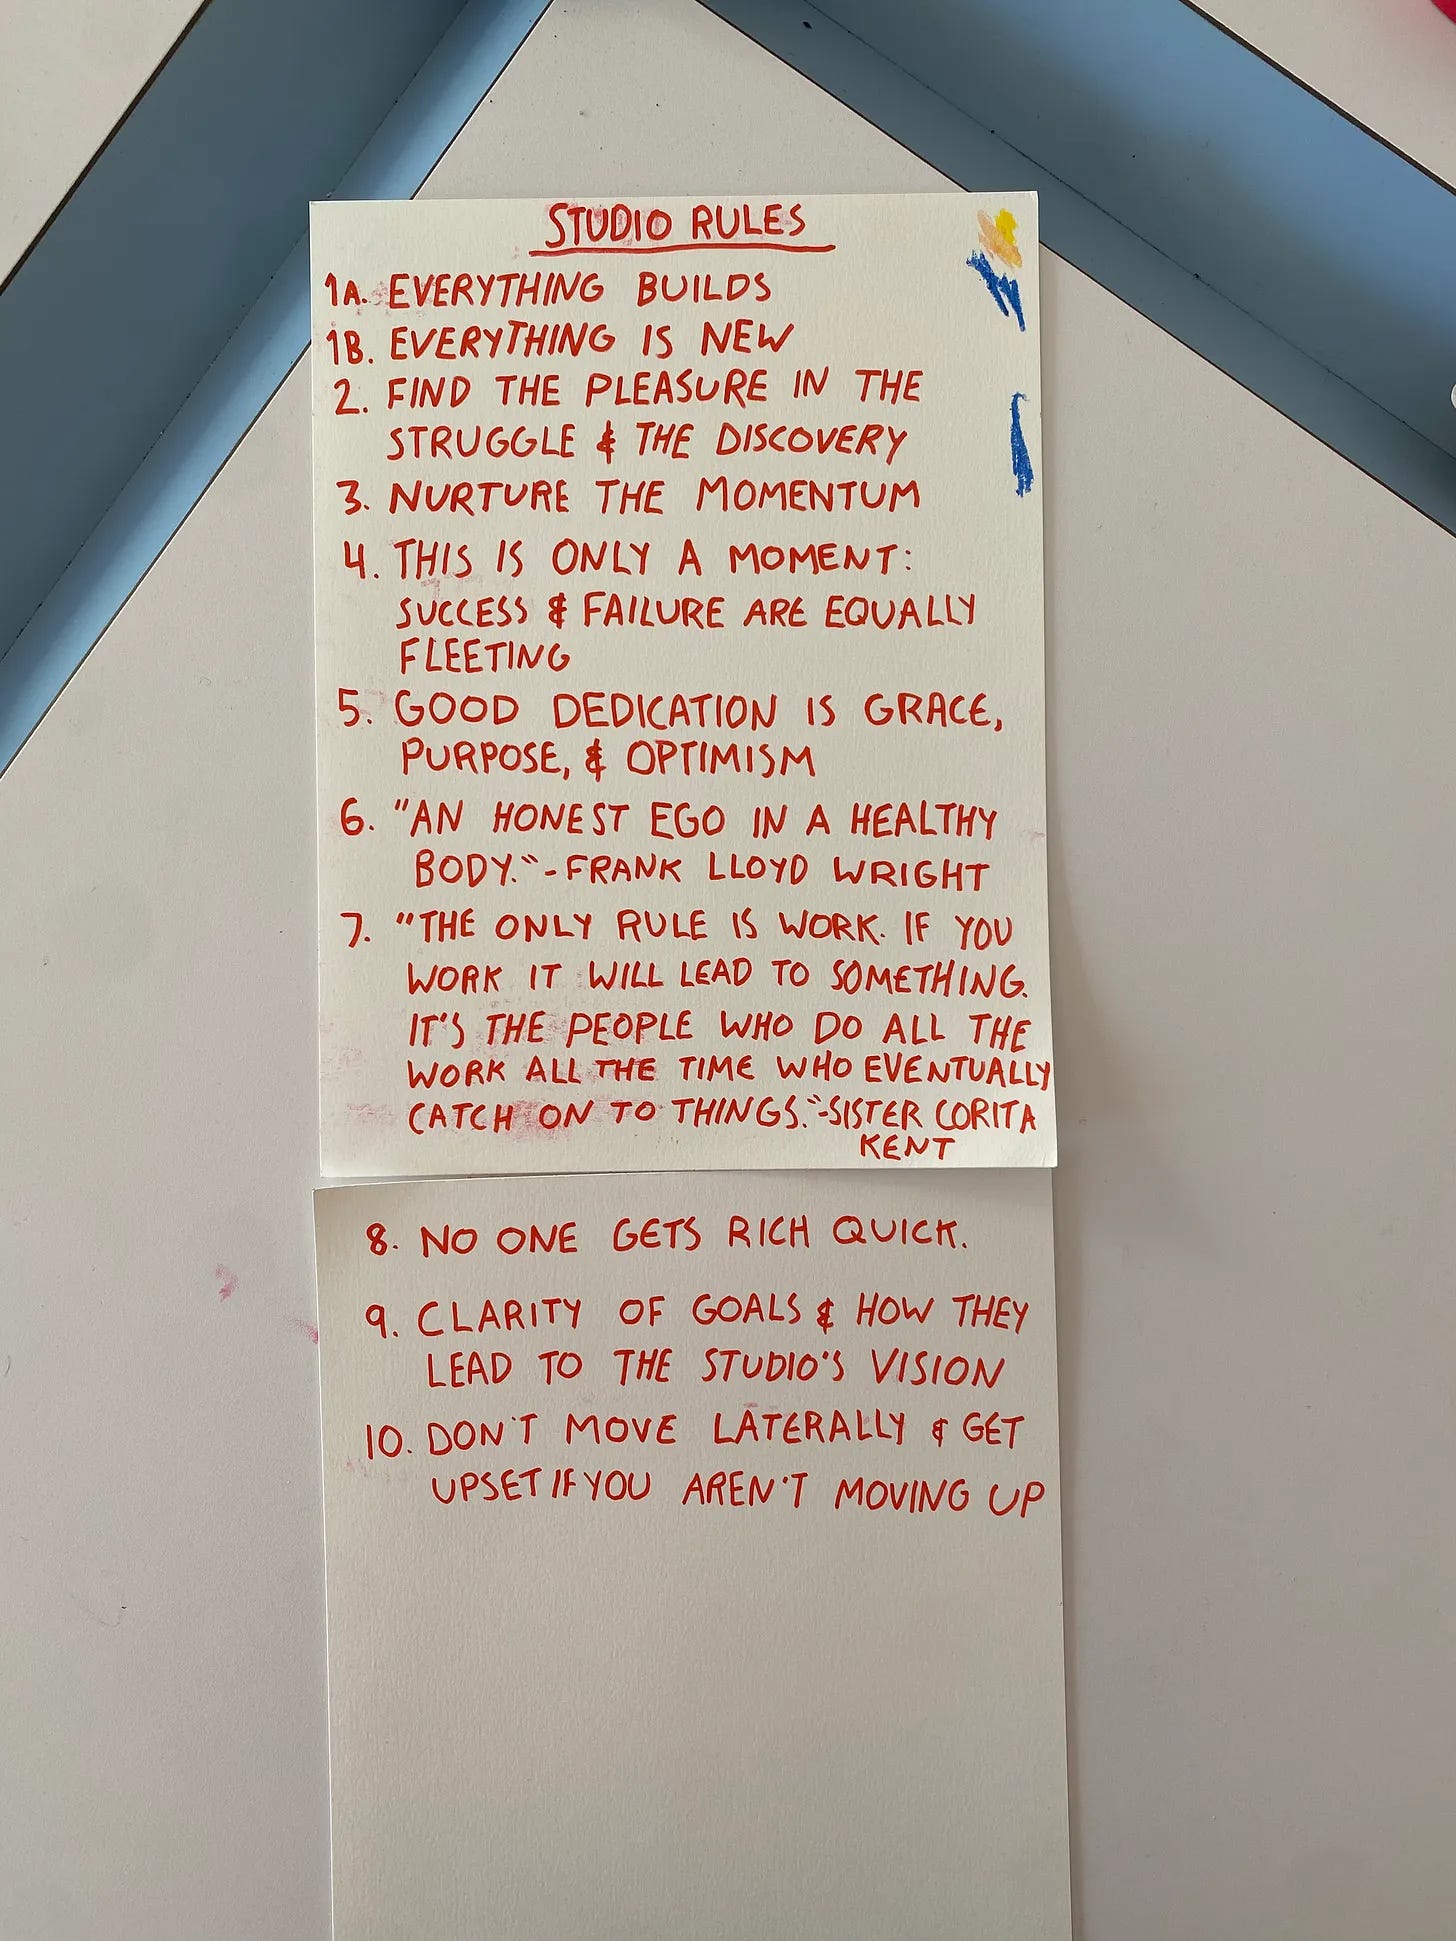 STUDIO RULES
1A. EVERYTHING BUILDS
1B. EVERYTHING IS NEW
2. FIND THE PLEASURE IN THE
STRUGGLE & THE DISCOVERY
3. NURTURE THE MOMENTUM
4. THIS IS ONLY A MOMENT:
SUCCESS & FAILURE ARE EQUALLY
FLEETING
5. GOOD DEDICATION IS GRACE,
PURPOSE, & OPTIMISM
6. "AN HONEST EGO IN A HEALTHY
BODY." - FRANK LLOYD WRIGHT
7. "THE ONLY RULE IS WORK. IF YOU
WORK IT WILL LEAD TO SOMETHING.
IT'S THE PEOPLE WHO DO ALL THE
WORK ALL THE TIME WHO EVENTUALLY
CATCH ON TO THINGS." - SISTER CORITA
KENT
8. NO ONE GETS RICH QUICK.
9. CLARITY OF GOALS & HOW THEY
LEAD TO THE STUDIO'S VISION
10. DON'T MOVE LATERALLY & GET
UPSET IF YOU AREN'T MOVING UP